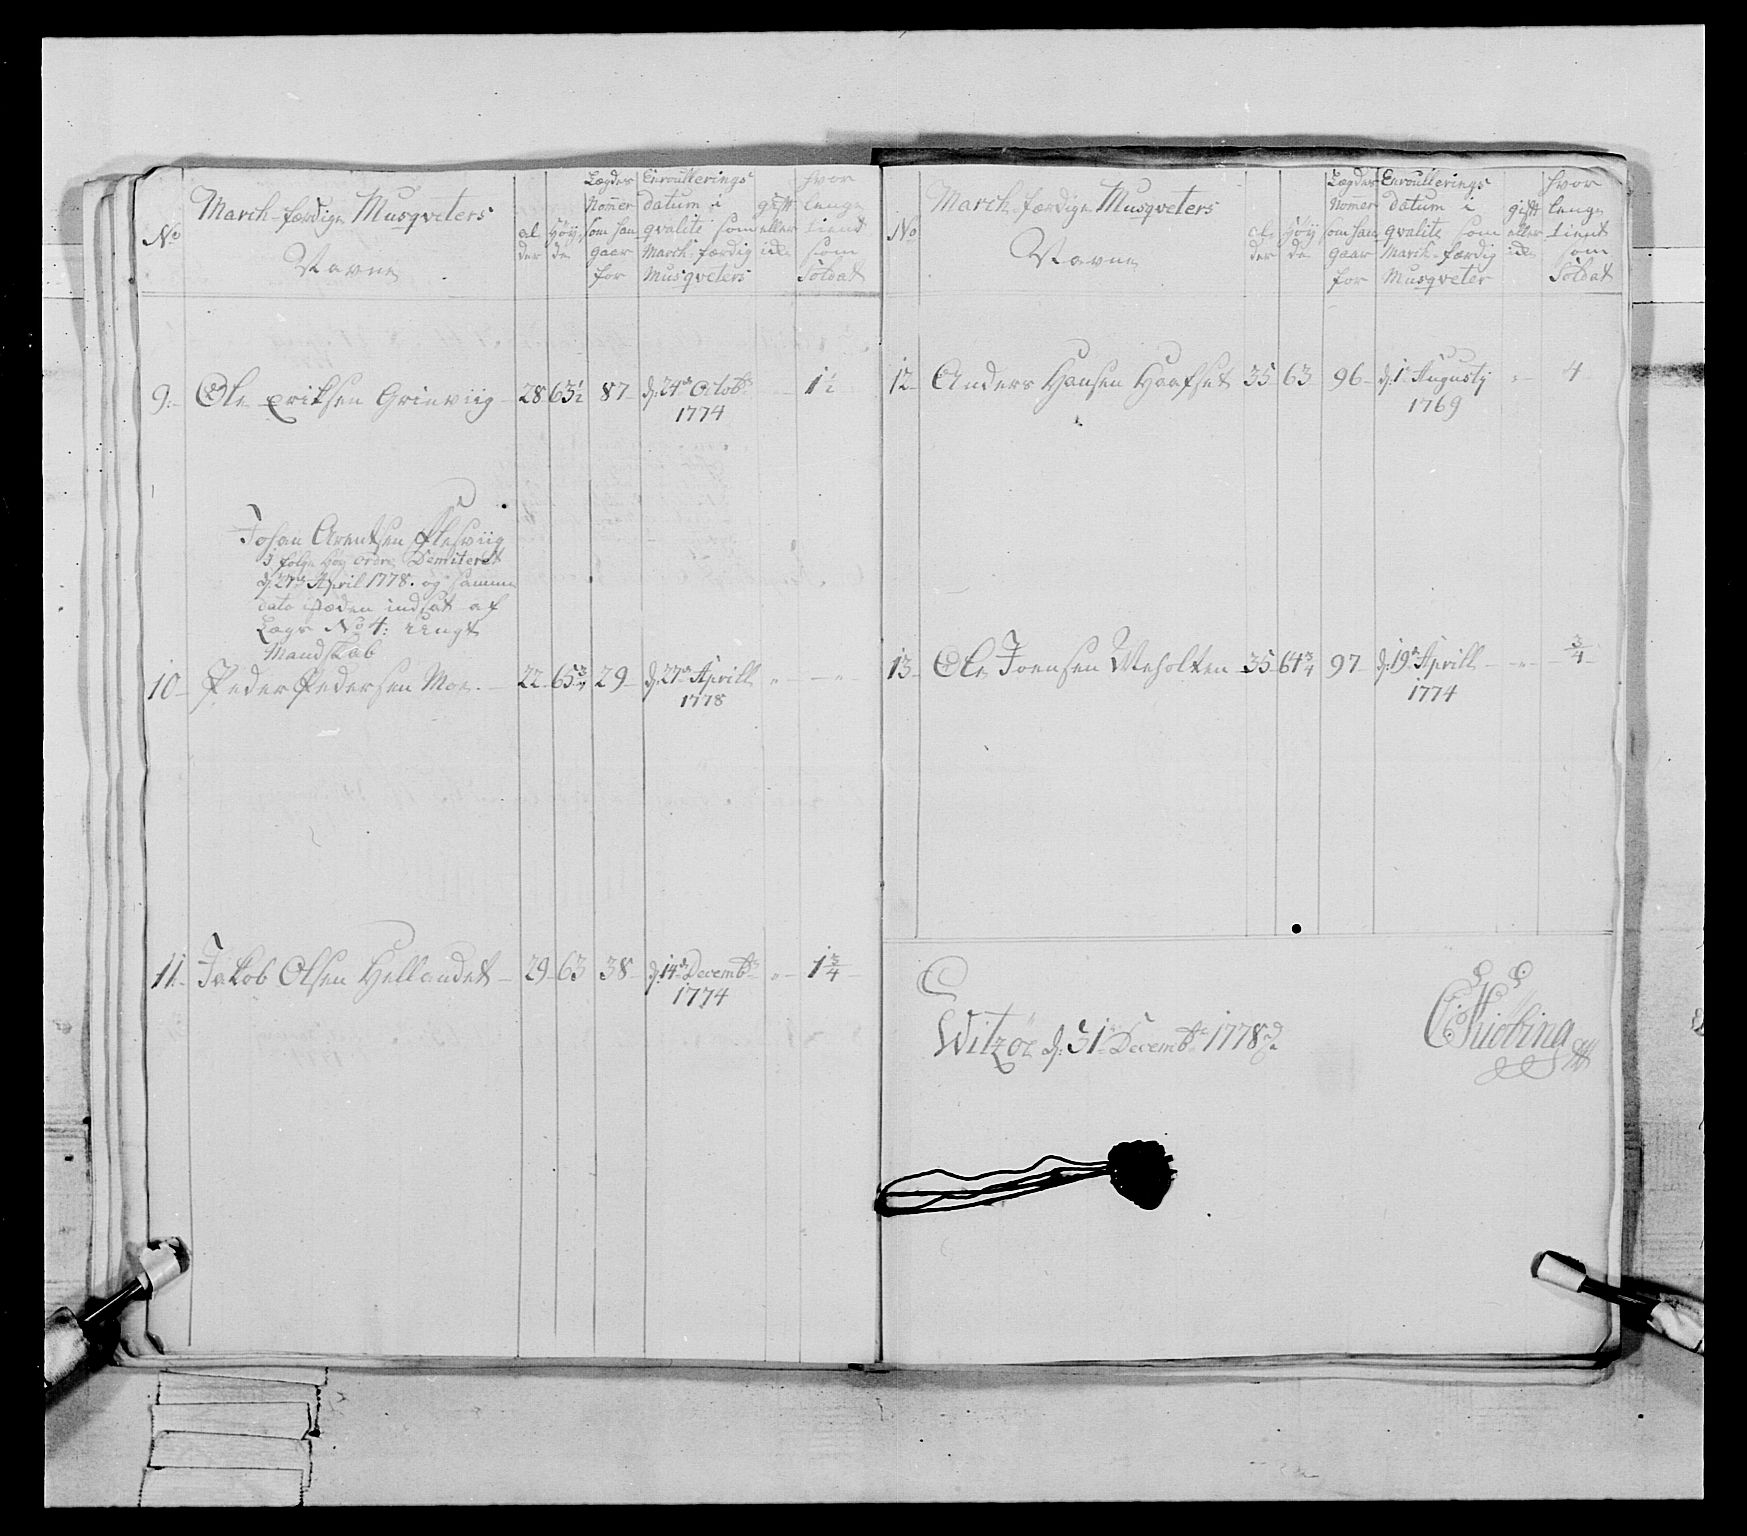 No
March-færdige Musqveters
Navne
al
der
Høy
de
Lægdes
Nomer
som han
gaar
for
Enroullerings
datum i
qvalite som
March-færdig
Musqveters
gift
eller
ikke
hvor
lenge
tient
som
Soldat
9. Ole Eriksen Grinviig 28 63½ 87 d: 24de Octobr 1½
1774
Johan Arentsen
I følge Høy Ordre Demiteret
d: 27de April 1778. og samme
dato i støden indsat af
Lægs No 4: Ungt
Mandskab
10 Peder Pedersen Moe. 22 65¾ 29 d: 27de Aprill " "
1778
11. Jakob Olsen Hellandet 29 63 38 d: 14de Decembr " 1¾
1774
No
March-færdige Musqveters
Navne
al
der
Høy
de
Lægdes
Nomer
som han
gaar
for
Enroullerings
datum i
qvalite som
March-færdig
Musqveter
gift
eller
ikke
hvor
lenge
tient
som
Soldat
12 Anders Hansen Haafset 35 63 96 d: 1te Augustj " 4
1769
13 Ole Joensen Weholten 35 64¾ 97 d: 19de Aprill " ¾
1774
Witzøe d: 31te Decembr 1778